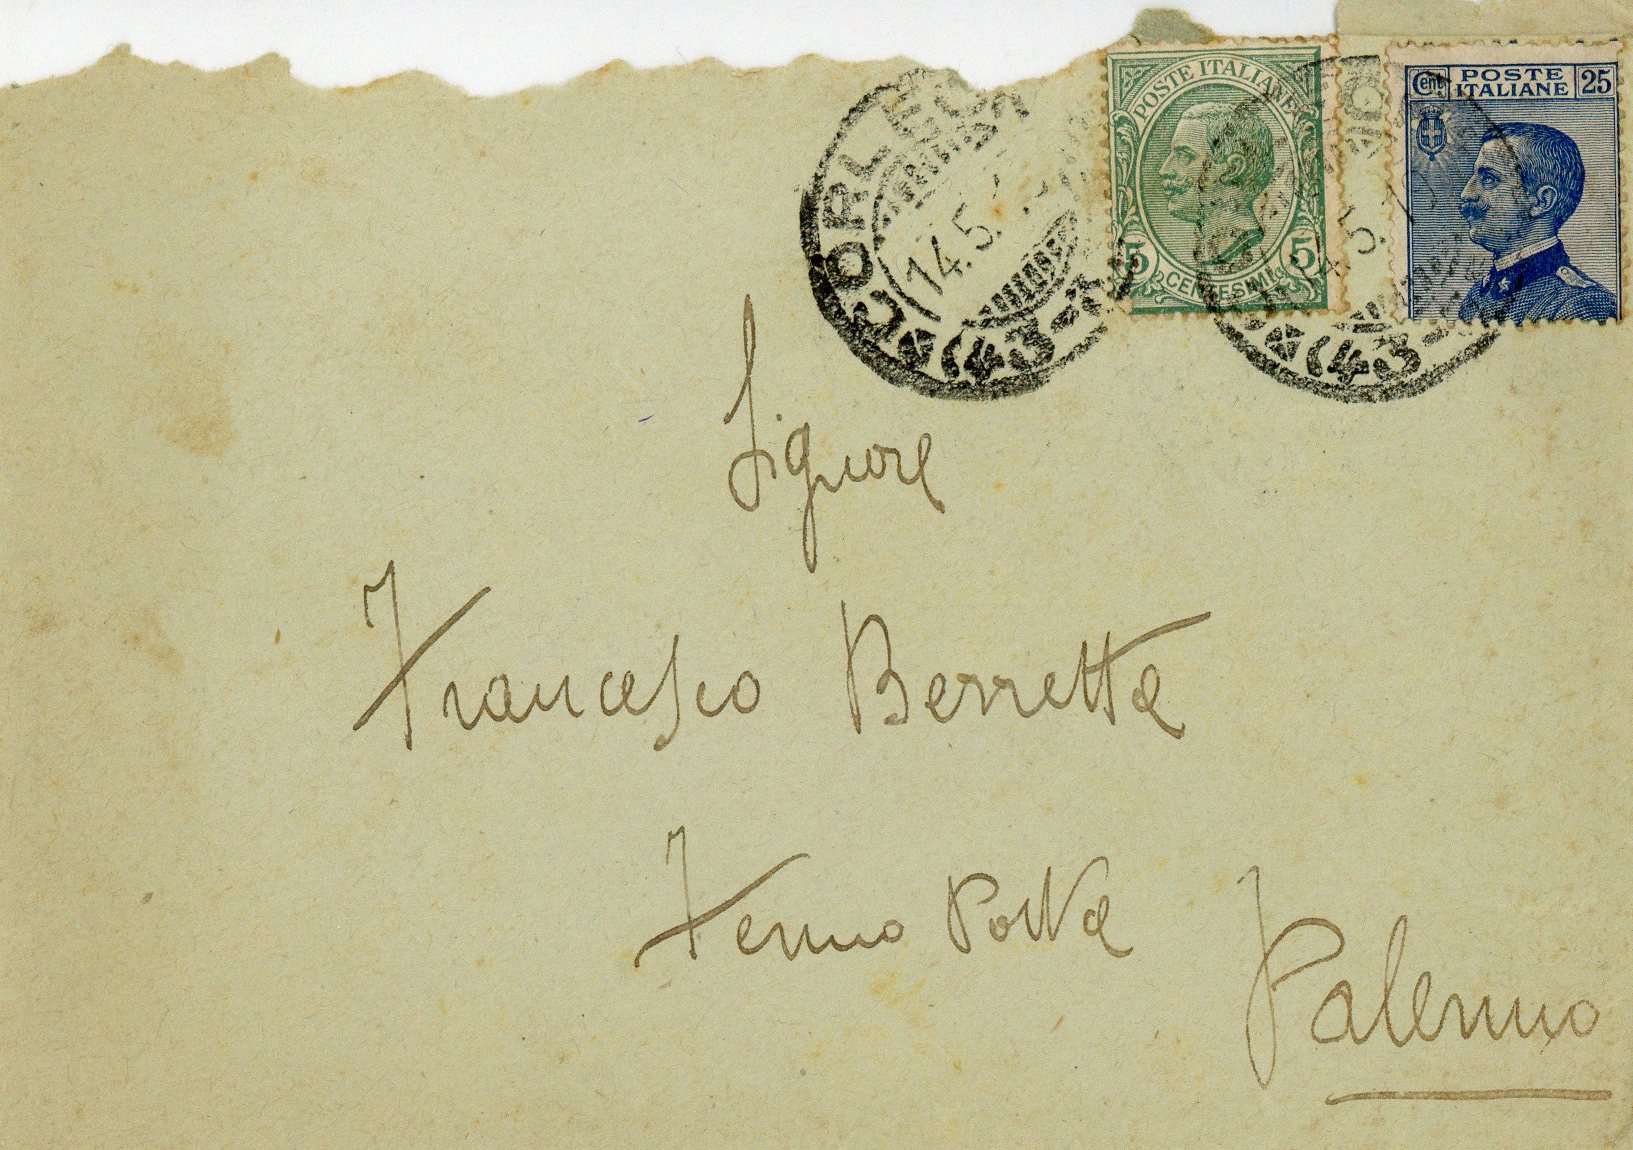 CORLEO
14.5.
(43-
POSTE ITALIANE
5 5
CENTESIMI
Cent POSTE ITALIANE 25
(43-
Signore
Francesco Berretta
Fermo Posta
Palermo